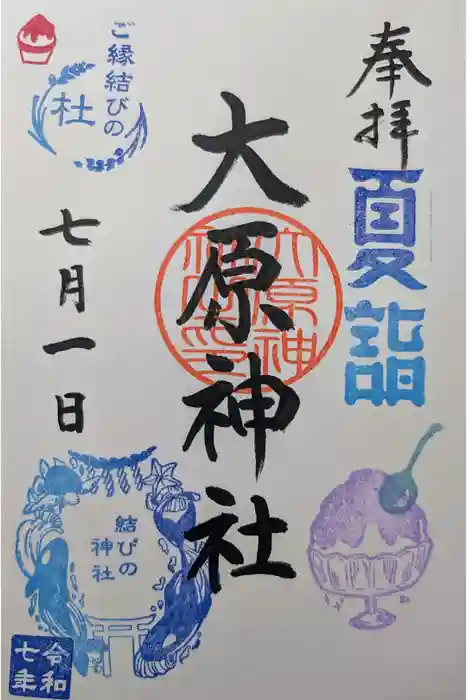 奉拝
夏詣
大原神社
大原神社印
ご縁結びの
杜
七月一日
結びの
神社
令和
七年